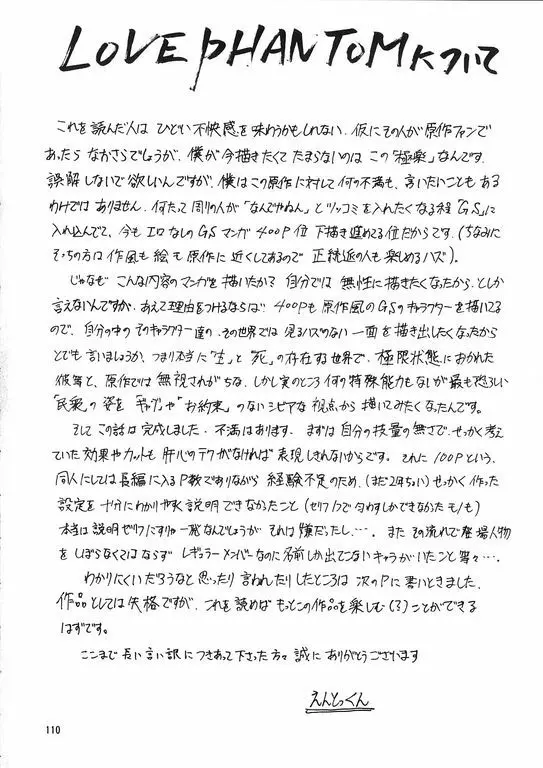 LOVE PHANTOMについて
これを読んだ人は ひどい不快感を味わうかもしれない. 仮にその人が原作ファンで
あったら なおさらでしょうが. 僕が今描きたくて たまらないのは この「極楽」なんです.
誤解しないで欲しいんですが. 僕はこの原作に対して何の不満も. 言いたいことも ある
わけでは ありません. 何たって 周りの人が「なんでやねん」とツッコミを入れたくなる程「GS」に
入れ込んでて、今も エロなしのGSマンガ 400P位 下描き進めてる位だからです。(ちなみに
そっちの方は作風も絵も原作に近くしてあるので 正統派の人も楽しめるハズ)。
じゃなぜ こんな内容のマンガを描いたか? 自分では 無性に描きたくなったから. としか
言えないんですが. あえて理由をつけるならば 400Pも 原作風のGSのキャラクターを描いてる
ので、自分の中の そのキャラクター達の、その世界では 見るハズのない 一面を描き出したくなったから
とでも言いましょうか、つまり本当に「生」と「死」の存在する世界で、極限状態におかれた
彼等と、原作では無視されがちな、しかし実のところ何の特殊能力もないが最も恐ろしい
「民衆」の姿を「ギャグ」や「お約束」のないシビアな視点から描いてみたくなったんです。
そして この話は完成しました. 不満はあります. まずは自分の技量の無さで. せっかく考え
ていた効果やカットも肝心のテクがなければ表現しきれないからです。それに100Pという、
同人にしては長編に入るP数でありながら 経験不足のため、(まだ2年ちょい) せっかく作った
設定を十分にわかりやすく説明できなかったこと (セリフ1つで匂わすしかできなかったモノも)
本当は説明ゼリフにすりゃ一発なんでしょうが それは嫌だったし…. また その流れで登場人物
をしぼらなくてはならず レギュラーメンバーなのに名前しか出てこないキャラがいたこと等々….
わかりにくいだろうなと思ったり 言われたりしたところは 次のPに書いときました.
作品としては失格ですが、これを読めば もっとこの作品を楽しむ(?)ことができる
はずです。
ここまで 長い言い訳に つきあって下さった方々 誠に ありがとうございます
えんとっくん
110